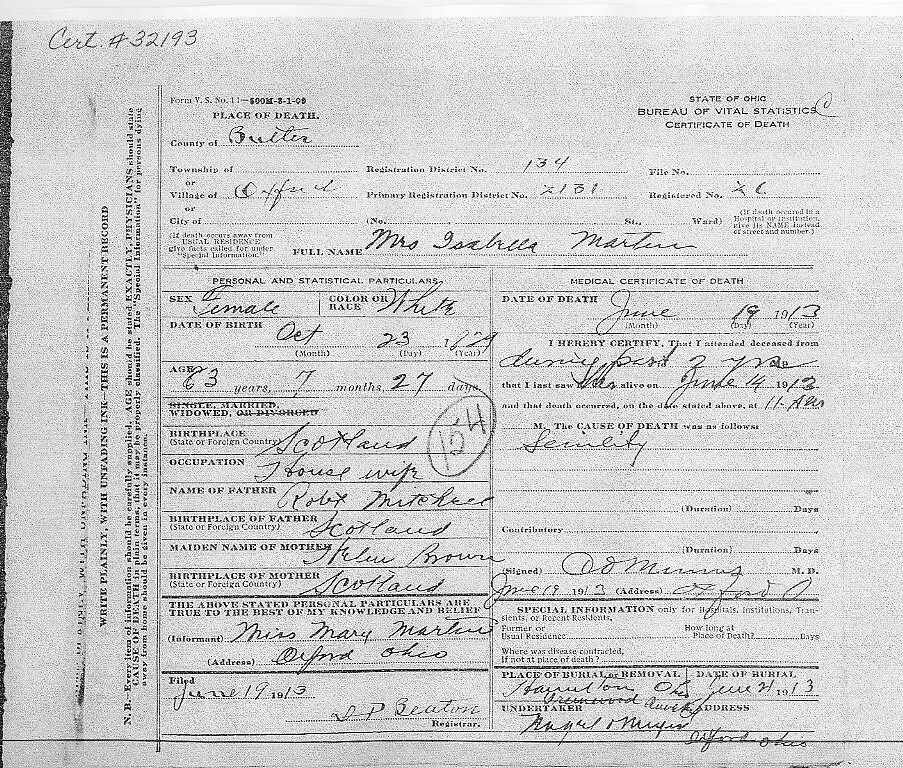 Cert. #32193
Form V. S. No. 11—500M-3-1-09
PLACE OF DEATH.
STATE OF OHIO
BUREAU OF VITAL STATISTICS C
CERTIFICATE OF DEATH
County of Butler
Township of
or
Village of Oxford
or
City of
Registration District No. 134
File No.
Primary Registration District No. 2131
Registered No.
(No. St., Ward)
(If death occurred in a Hospital or Institution, give its NAME instead of street and number.)
(If death occurs away from USUAL RESIDENCE give facts called for under "Special Information.")
FULL NAME Mrs Isabella Martin
PERSONAL AND STATISTICAL PARTICULARS
SEX Female
COLOR OR RACE White
DATE OF BIRTH Oct 23 1829
(Month) (Day) (Year)
AGE 83 years, 7 months, 27 days
SINGLE, MARRIED,
WIDOWED, OR DIVORCED
154
BIRTHPLACE
(State or Foreign Country) Scotland
OCCUPATION House wife
NAME OF FATHER Robt Mitchell
BIRTHPLACE OF FATHER
(State or Foreign Country) Scotland
MAIDEN NAME OF MOTHER Helen Brown
BIRTHPLACE OF MOTHER
(State or Foreign Country) Scotland
THE ABOVE STATED PERSONAL PARTICULARS ARE
TRUE TO THE BEST OF MY KNOWLEDGE AND BELIEF
(Informant) Miss Mary Martin
(Address) Oxford Ohio
Filed
June 19 1913
D P Beaton
Registrar.
MEDICAL CERTIFICATE OF DEATH
DATE OF DEATH June 19 1913
(Month) (Day) (Year)
I HEREBY CERTIFY, That I attended deceased from
during past 2 yrs
that I last saw her alive on June 14 1913
and that death occurred, on the date stated above, at 11-
M. The CAUSE OF DEATH was as follows:
Senility
(Duration) Days
Contributory
(Duration) Days
(Signed) M. D.
June 19 1913 (Address) Oxford O
SPECIAL INFORMATION only for Hospitals, Institutions, Tran-
sients, or Recent Residents.
Former or
Usual Residence
How long at
Place of Death? Days
Where was disease contracted,
If not at place of death?
PLACE OF BURIAL or REMOVAL
Hamilton Ohio
Greenwood Cemetery
DATE OF BURIAL
June 21 1913
UNDERTAKER
ADDRESS
Oxford Ohio
WRITE PLAINLY, WITH UNFADING INK—THIS IS A PERMANENT RECORD
N. B.—Every item of information should be carefully supplied. AGE should be stated EXACTLY. PHYSICIANS should state
CAUSE OF DEATH in plain terms, that it may be properly classified. The "Special Information" for persons dying
away from home should be given in every instance.